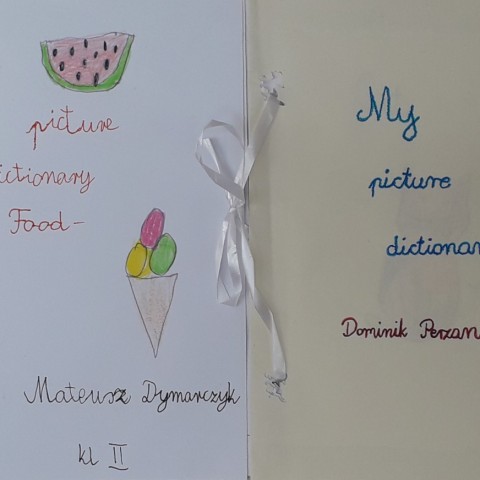 picture
ictionary
Food-
Mateusz Dymarczyk
kl II
My
picture
dictionar
Dominik Perzan